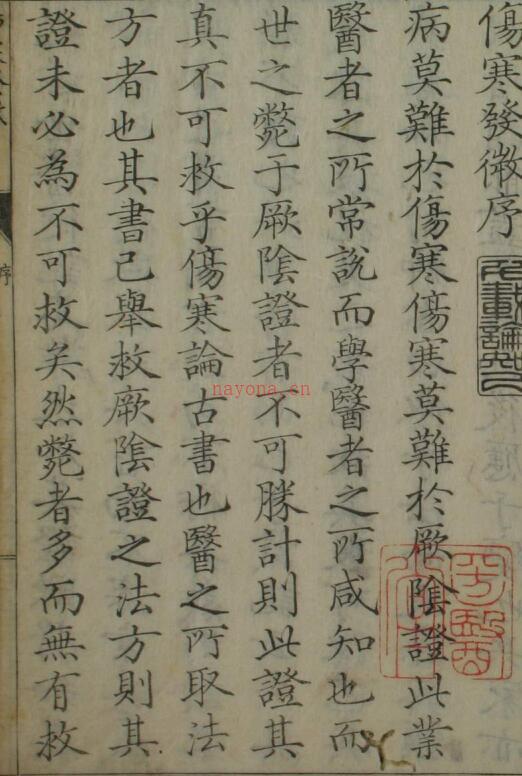 傷寒發微序
病莫難於傷寒傷寒莫難於厥陰證此業
醫者之所常說而學醫者之所咸知也而
世之斃于厥陰證者不可勝計則此證其
真不可救乎傷寒論古書也醫之所取法
方者也其書已舉救厥陰證之法方則其
證未必為不可救矣然斃者多而無有救
序
nayona.cn